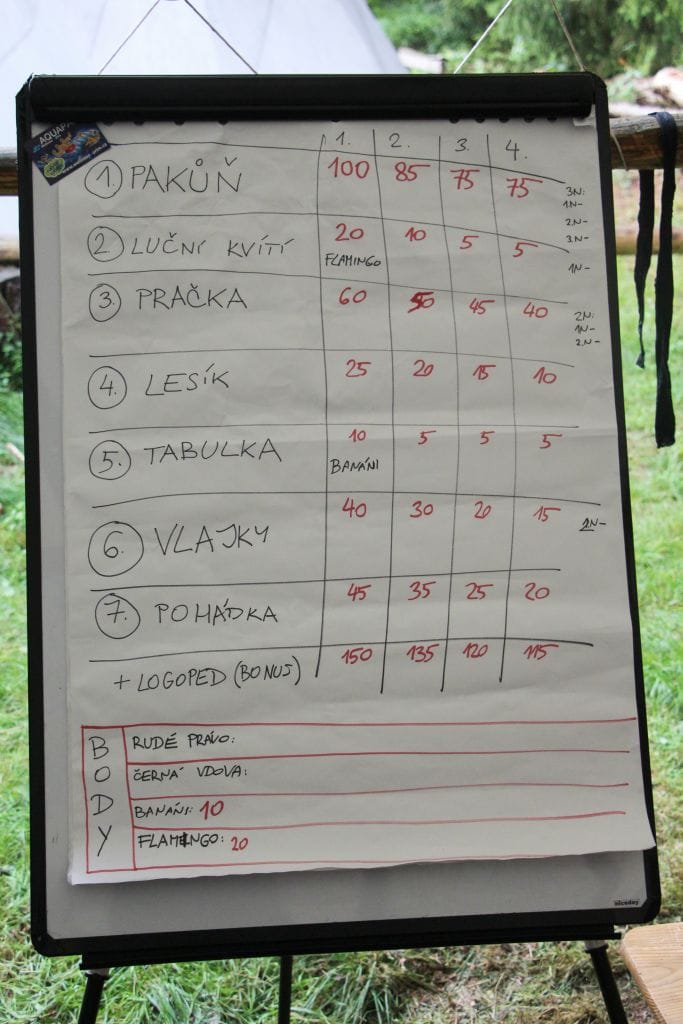 AQUAPA
1. 2. 3. 4.
1. PAKŮŇ 100 85 75 75
3N:
1.N-
2.N-
3.N-
2. LUČNÍ KVÍTÍ 20 10 5 5
FLAMINGO
1N-
3. PRAČKA 60 50 45 40
2N:
1N-
2.N-
4. LESÍK 25 20 15 10
5. TABULKA 10 5 5 5
BANÁNI
6. VLAJKY 40 30 20 15
7. POHÁDKA 45 35 25 20
+ LOGOPED (BONUS) 150 135 120 115
BODY
RUDÉ PRÁVO:
ČERNÁ VDOVA:
BANÁNI: 10
FLAMINGO: 20
niceday